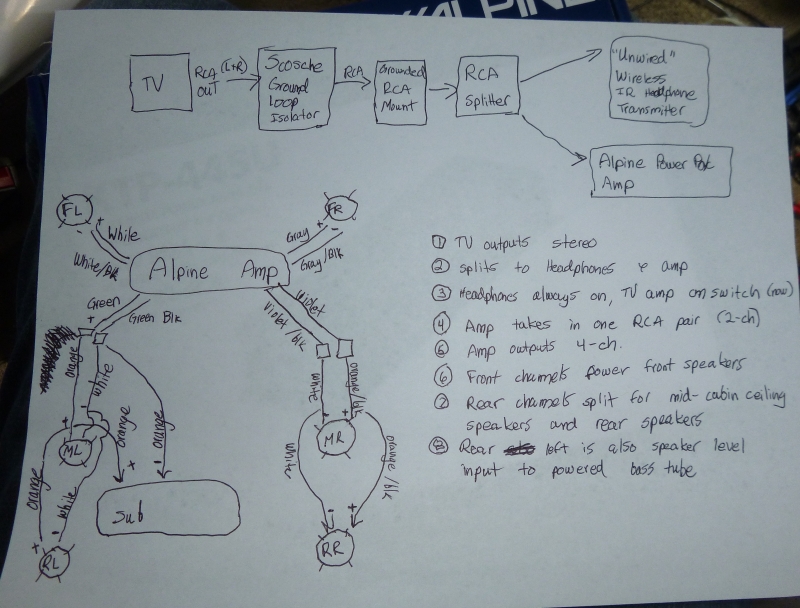 ALPINE
TV
RCA (L+R)
OUT
Scosche
Ground
Loop
Isolator
RCA
Grounded
RCA
Mount
RCA
Splitter
"Unwired"
Wireless
IR Headphone
Transmitter
Alpine Power Pak
Amp
FL
White
White/Blk
FR
Gray
Gray/Blk
Alpine Amp
Green
Green Blk
Violet
Violet/blk
orange
white
orange
orange
ML
orange
white
RL
Sub
white
orange/blk
MR
white
orange/blk
RR
① TV outputs stereo
② splits to Headphones & amp
③ Headphones always on, TV amp on switch (now)
④ Amp takes in one RCA pair (2-ch)
⑤ Amp outputs 4-ch.
⑥ Front channels power front speakers
⑦ Rear channels split for mid-cabin ceiling
speakers and rear speakers
⑧ Rear left is also speaker level
input to powered bass tube